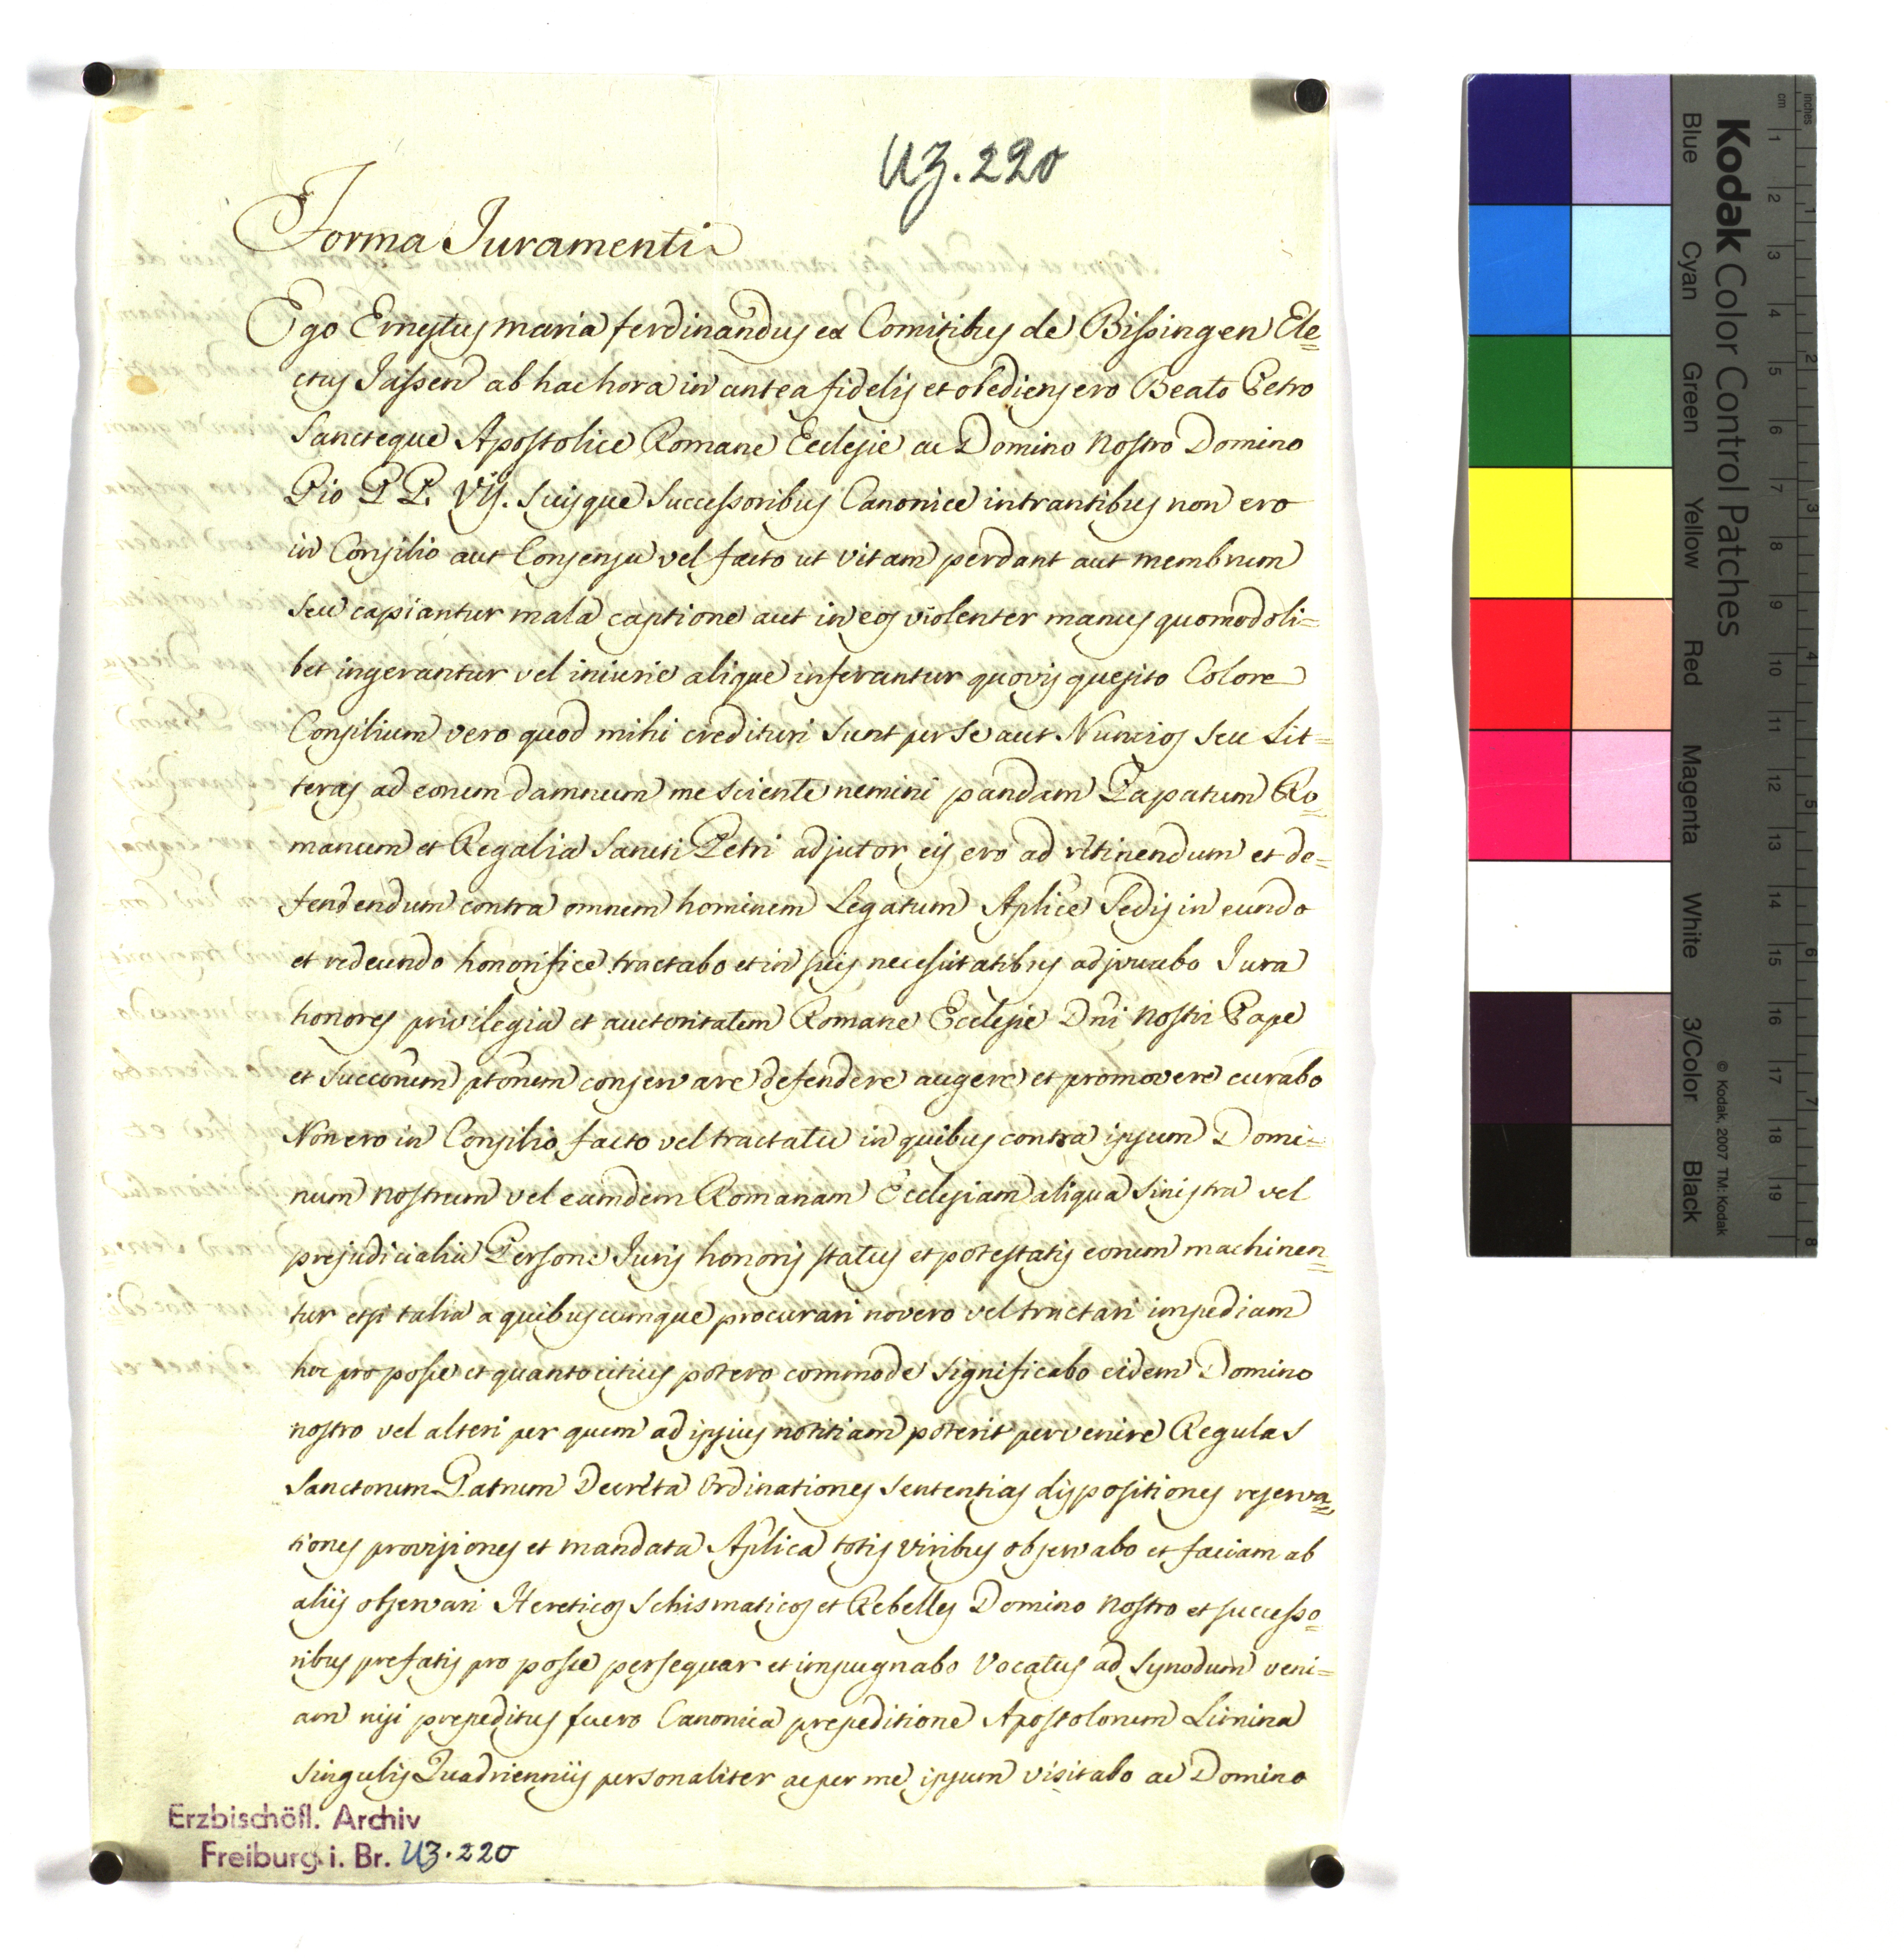 UZ. 220
Forma Juramenti
Ego Ernestus Maria ferdinandus ex Comitibus de Bissingen Ele=
ctus Jassen ab hac hora in antea fidelis et obediens ero Beato Petro
Sancteque Apostolice Romane Ecclesie ac Domino Nostro Domino
Pio P.P. VII. Suisque Successoribus Canonice intrantibus non ero
in Consilio aut Consensu vel facto ut vitam perdant aut membrum
seu capiantur mala captione aut in eos violenter manus quomodoli=
bet ingerantur vel iniurie alique inferantur quovis quesito Colore
Consilium vero quod mihi credituri sunt per se aut Nuncios seu Lit=
teras ad eorum damnum me sciente nemini pandam Papatum Ro=
manum et Regalia Sancti Petri adjutor eis ero ad retinendum et de=
fendendum contra omnem hominem Legatum Aplice Sedis in eundo
et redeundo honorifice tractabo et in suis necessitatibus adjuvabo Jura
honores privilegia et auctoritatem Romane Ecclesie Dni Nostri Pape
et Succorum ptorum conservare defendere augere et promovere curabo
Non ero in Consilio facto vel tractatu in quibus contra ipsum Domi=
num nostrum vel eamdem Romanam Ecclesiam aliqua sinistra vel
prejudicialia Persone Juris honoris status et potestatis eorum machinen=
tur et si talia a quibuscumque procurari novero vel tractari impediam
hoc pro posse et quanto citius potero commode significabo eidem Domino
nostro vel alteri per quem ad ipsius notitiam poterit pervenire Regulas
Sanctorum Patrum Decreta Ordinationes Sententias dispositiones reserva=
tiones provisiones et mandata Aplica totis viribus observabo et faciam ab
aliis observari Hereticos Schismaticos et Rebelles Domino Nostro et successo=
ribus prefatis pro posse persequar et impugnabo Vocatus ad Synodum veni=
am nisi prepeditus fuero Canonica prepeditione Apostolorum Limina
Singulis Quadrienniis personaliter ac per me ipsum visitabo ac Domino
Erzbischöfl. Archiv
Freiburg i. Br. UZ. 220
Kodak Color Control Patches
Blue Cyan Green Yellow Red Magenta White 3/Color Black
© Kodak, 2007 TM: Kodak
inches 1 2 3 4 5 6 7 8
cm 1 2 3 4 5 6 7 8 9 10 11 12 13 14 15 16 17 18 19